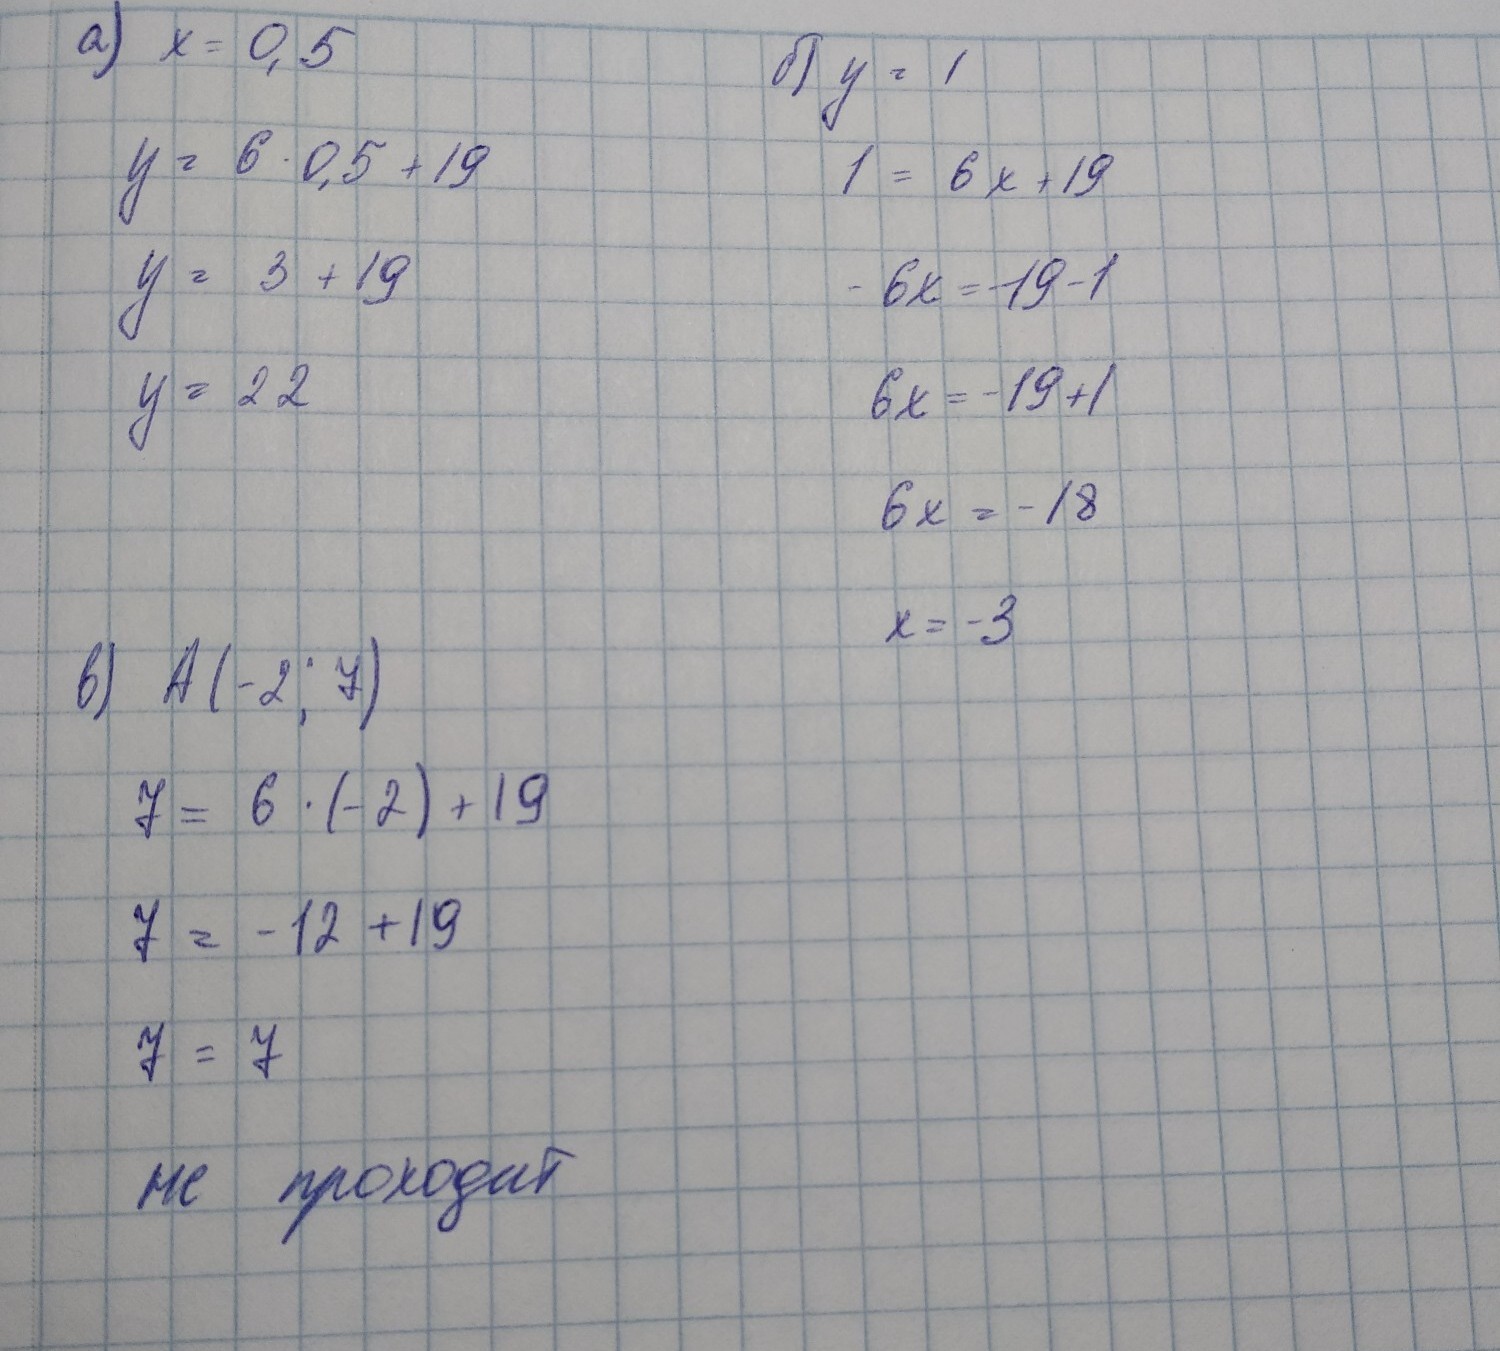 а) x = 0,5
y = 6 · 0,5 + 19
y = 3 + 19
y = 22
б) y = 1
1 = 6x + 19
- 6x = 19 - 1
6x = -19 + 1
6x = -18
x = -3
в) A (-2; 7)
7 = 6 · (-2) + 19
7 = -12 + 19
7 = 7
не проходит